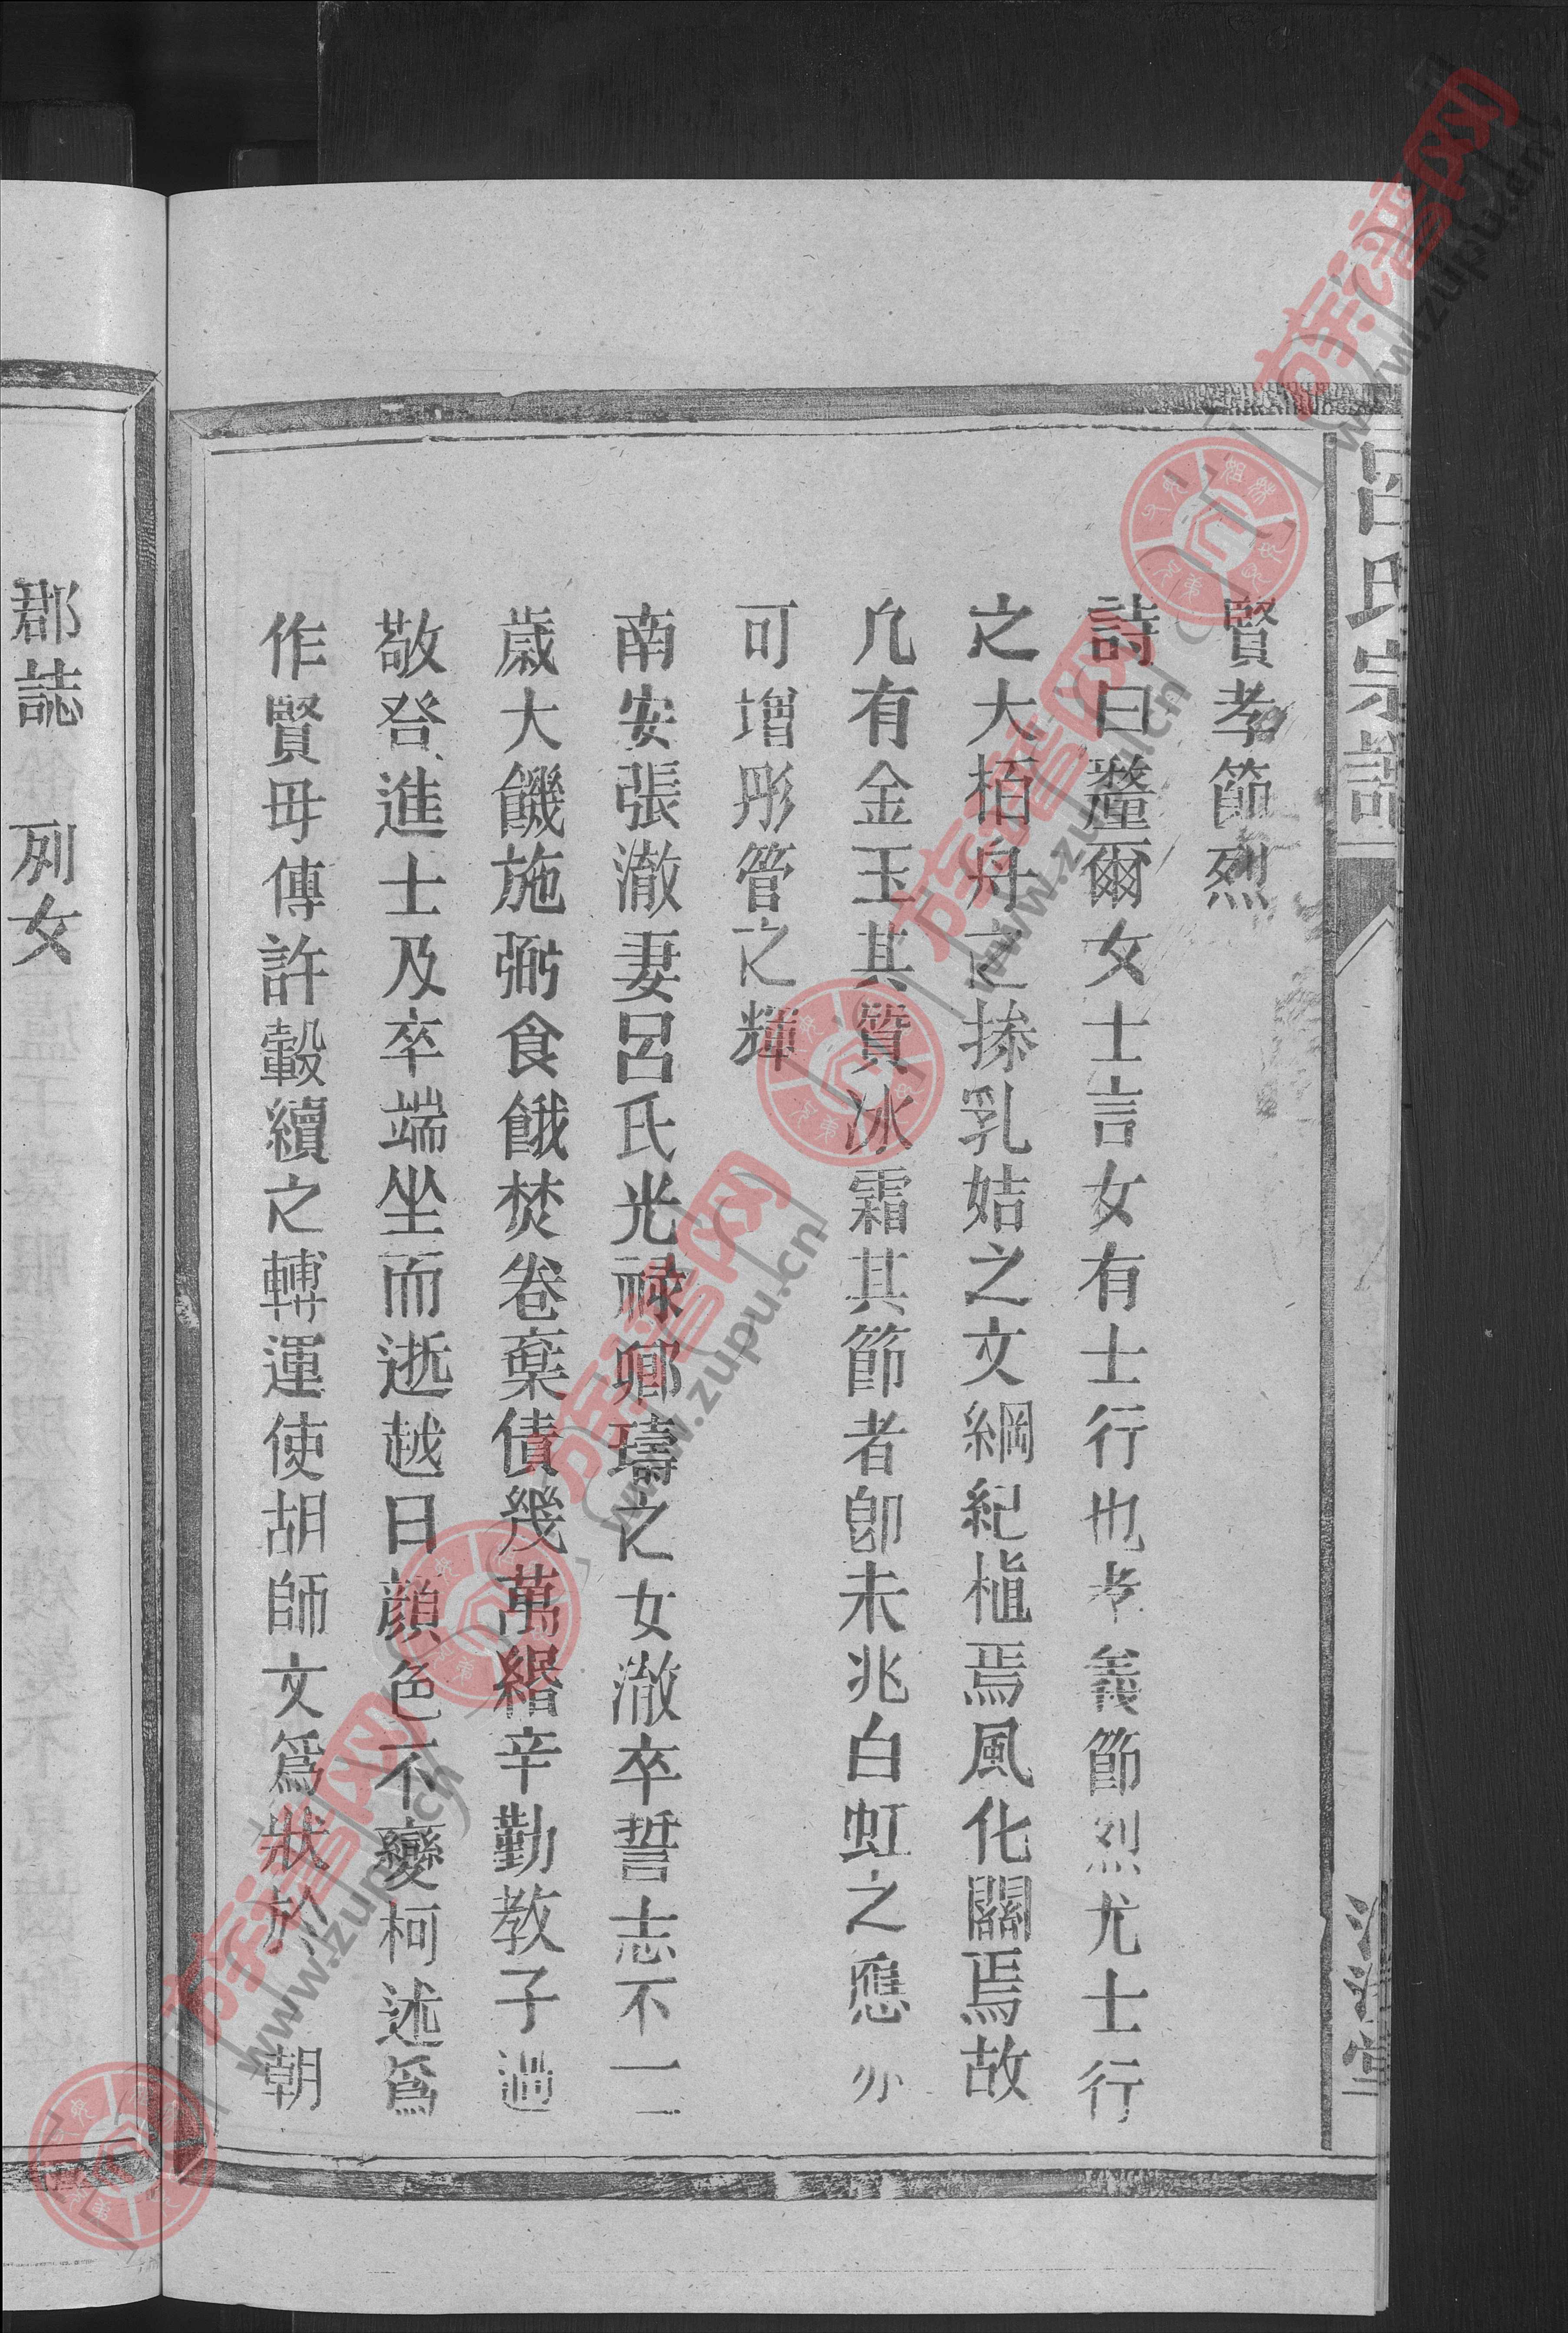 呂氏宗譜
賢孝節烈
詩曰釐爾女士言女有士行也孝義節烈尤士行
之大栢舟之操乳姑之文綱紀植焉風化關焉故
凢有金玉其質冰霜其節者卽未兆白虹之應亦
可增彤管之輝
南安張澈妻呂氏光祿鄉璹之女澈卒誓志不二
歲大饑施粥食餓焚卷棄債幾萬緡辛勤教子過
敬登進士及卒端坐而逝越日顏色不變柯述爲
作賢母傳許轂續之轉運使胡師文爲狀於 朝
郡誌 列女
www.zupu.cn
www.zupu.cn
www.zupu.cn
www.zupu.cn